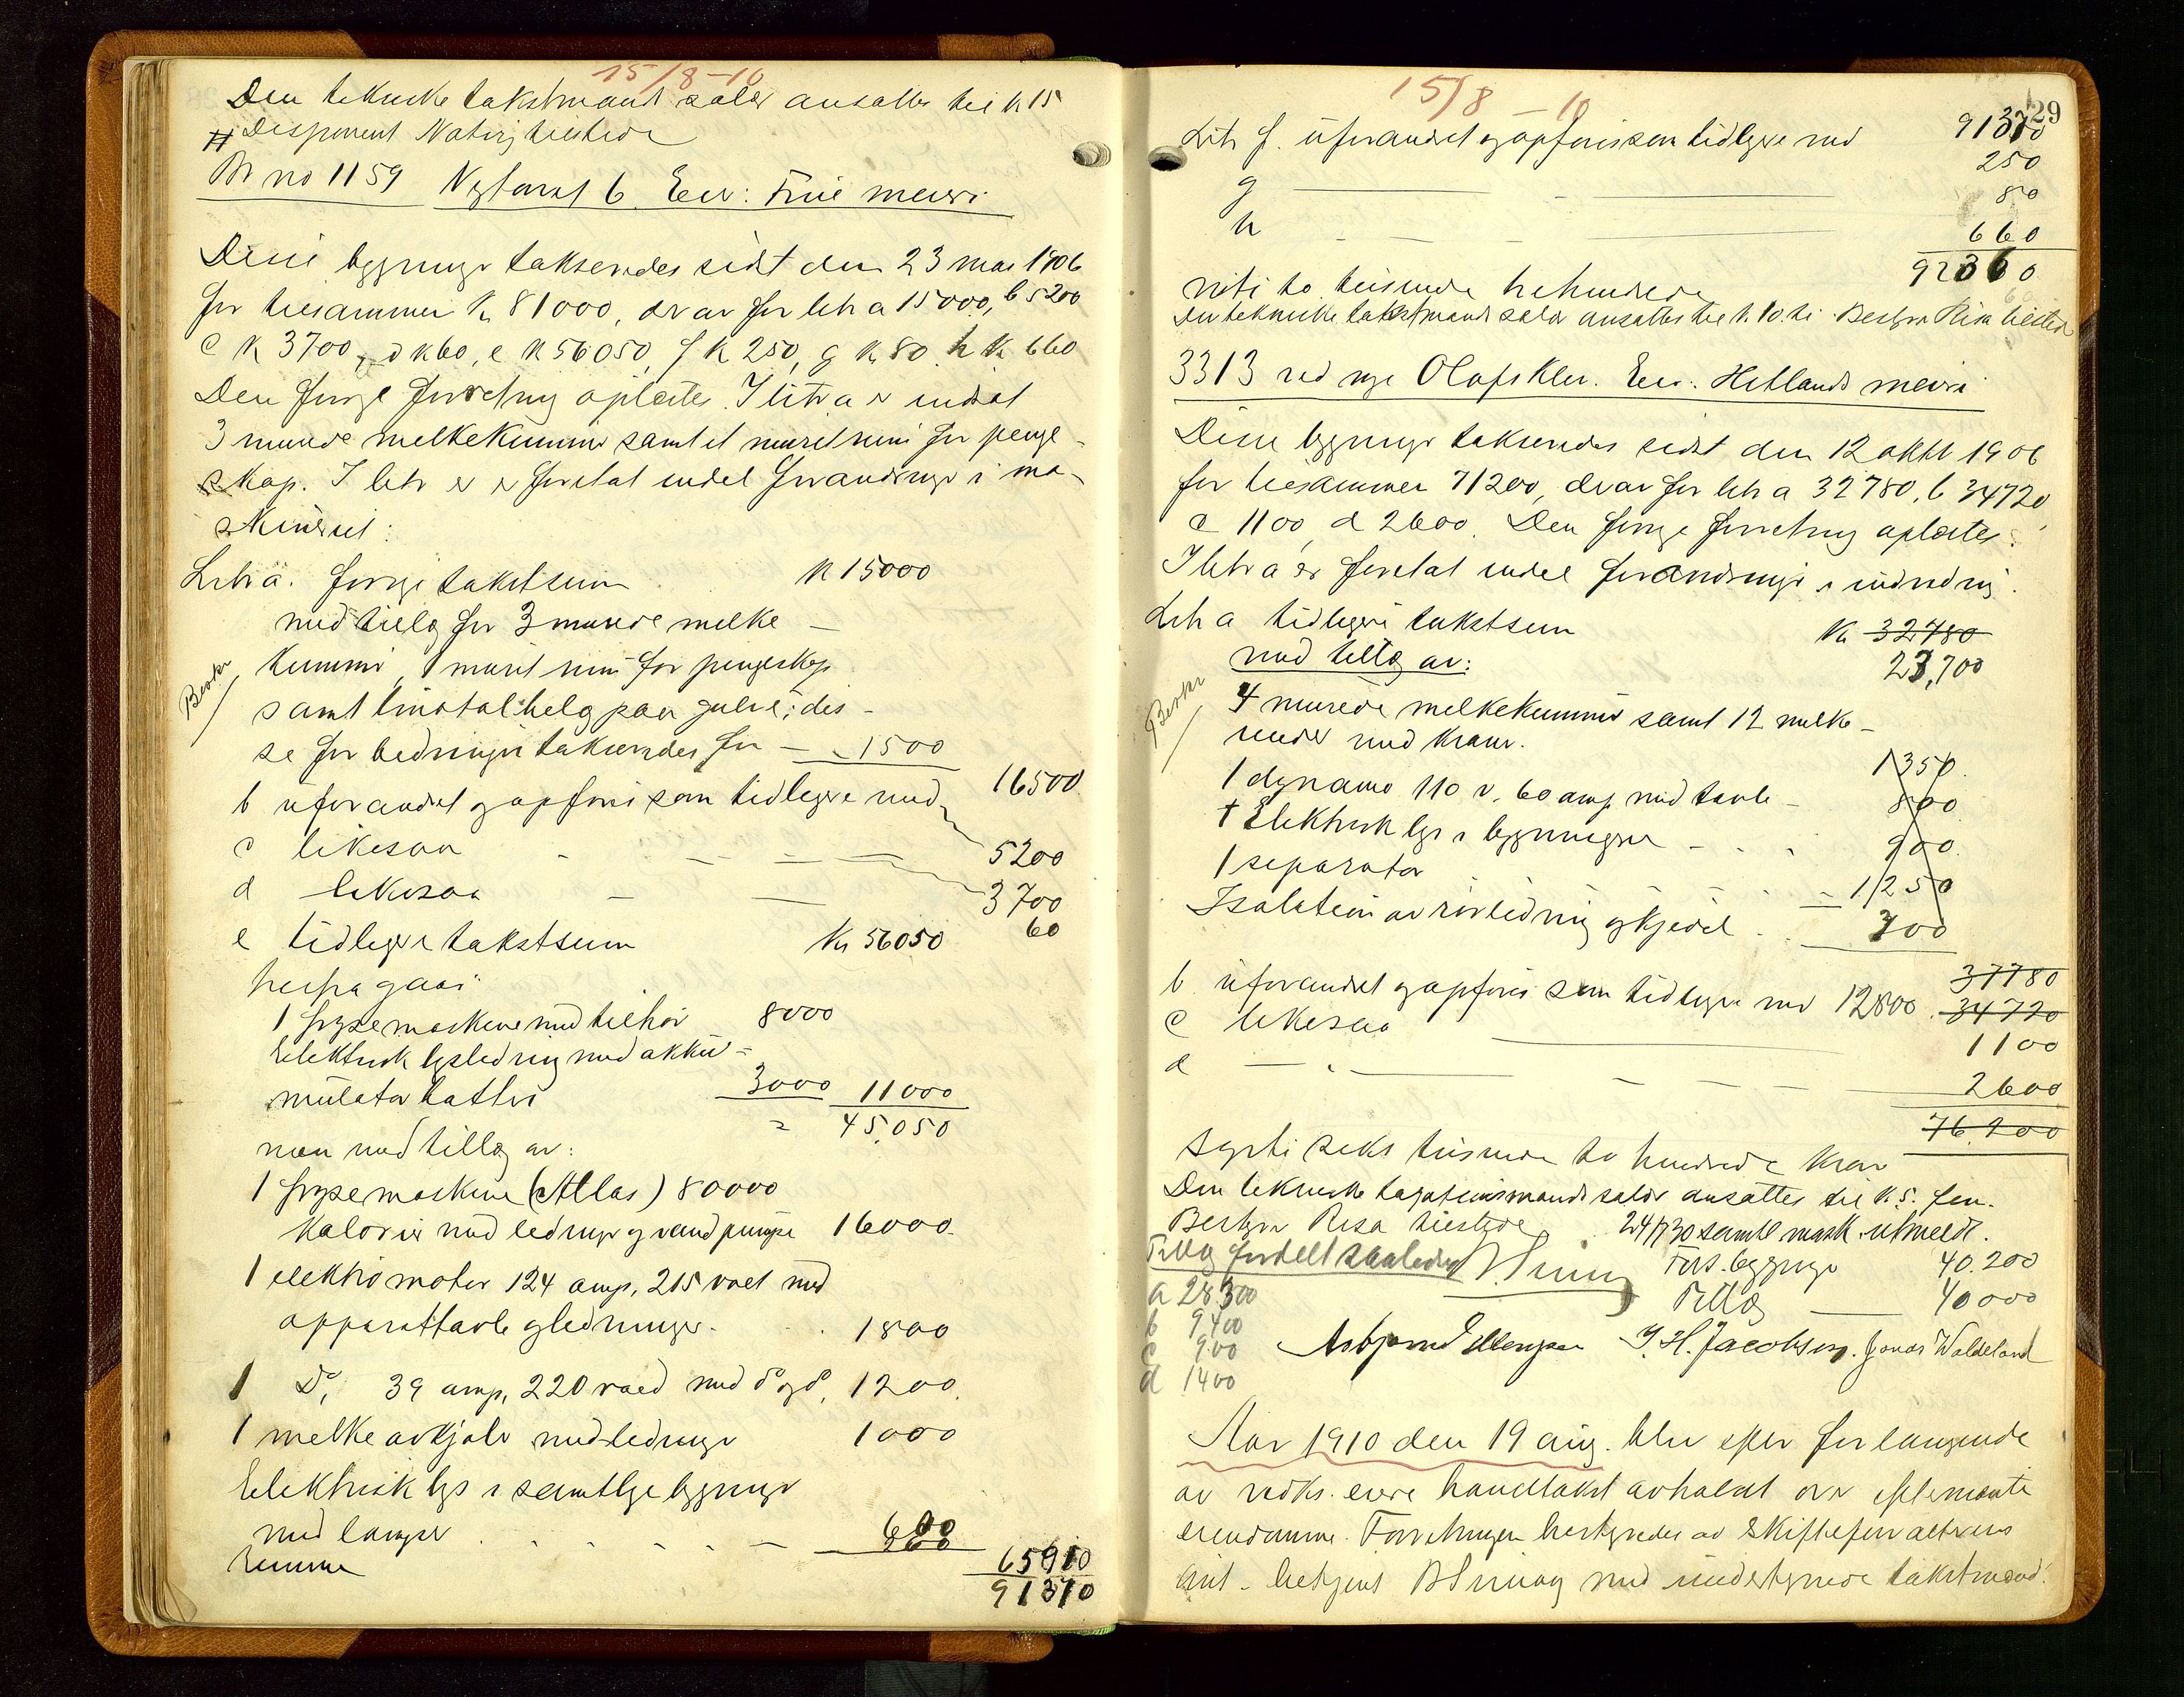 15/8-10
Den tekniske takstmands salær ansattes til k 15
# Disponent Natvig tilstede
Br no 1159 Nytorvet 6. Eier: Frue meieri
Disse bygninger takseredes sidst den 23 mai 1906
for tilsammen kr 81000, derav for litr a 15000, b 5200
c k 3700, d k 60, e k 56050, f k 250, g kr 80 h kr 660
Den forrige forretning oplæstes. I litr a er indsat
3 murede melkekummer samt et muret rum for penge-
skap. I litr e er foretat endel forandringer i ma-
skineriet:
Litr a. forrige takstsum k 15000
med tillæg for 3 murede melke-
Beskr kummer, 1 muret rum for pengeskap
samt linotolbelæg paa gulve; dis-
se forbedringer takseredes for - 1500
16500
b uforandret og opføres som tidligere med
c likesaa 5200
d likesaa 3700
e tidligere takstsum Kr 56050 60
herfra gaar:
1 frysemaskine med tilhør 8000
Elektrisk lysledning med akku-
mulator batteri 3000 11000
= 45,050
men med tillæg av:
1 frysemaskine (Atlas) 80000
kalorier med ledninger og vandpumpe 16000.
1 elektromotor 124 amp, 215 volt med
apparattavle og ledninger. 1800
1 Do, 39 amp, 220 volt med do og do, 1200.
1 melkeavkjøler med ledninger 1000
Elektrisk lys i samtlige bygninger
med lamper 600
65910
Summa 91370
15/8-10
29
91370
Litr f. uforandret og opføres som tidligere med 250
g 80
h 660
92360
nitito tusinde trehundrede
Den tekniske takstmands salær ansattes til k. 10. Bestyrer Risa tilstede
3313 ved nye Olafsklev. Eier: Hetlands meieri
Disse bygninger takseredes sidst den 12 oktbr 1906
for tilsammen 71200, derav for litr a 32780, b 34720,
c 1100, d 2600. Den forrige forretning oplæstes.
I litr a er foretat endel forandringer i indredning.
Litr a tidligere takstsum Kr 32780
med tillæg av: 23,700
Beskr 4 murede melkekummer samt 12 melke-
render med kraner. 1350.
1 dynamo 110 v. 60 amp med tavle - 800
+ Elektrisk lys i bygningerne 900.
1 separator 1250
Isolation av rørledning og kjedel 700
37780
b uforandret og opføres som tidligere med 12800 34720
c likesaa 1100
d 2600
76.200
Sytti seks tusinde to hundrede kroner
Den tekniske taxationsmands salær ansattes til k. 5. fem.
Bestyrer Risa tilstede 24/7 30 samtl mask. utmeldt.
Tillæg fordelt saaledes Fors. bygninger 40.200
a 28300 Tillæg 40000
b 9400
c 900 Asbjørn Ellingsen J. H. Jacobsen. Jonas Waldeland
d 1400
Aar 1910 den 19 aug. blev efter forlangende
av vedk. eiere branntakst avholdt over eftermeldte
eiendomme. Forretningen bestyredes av skifteforvalterens
aut. betjent med undertegnede takstmænd.